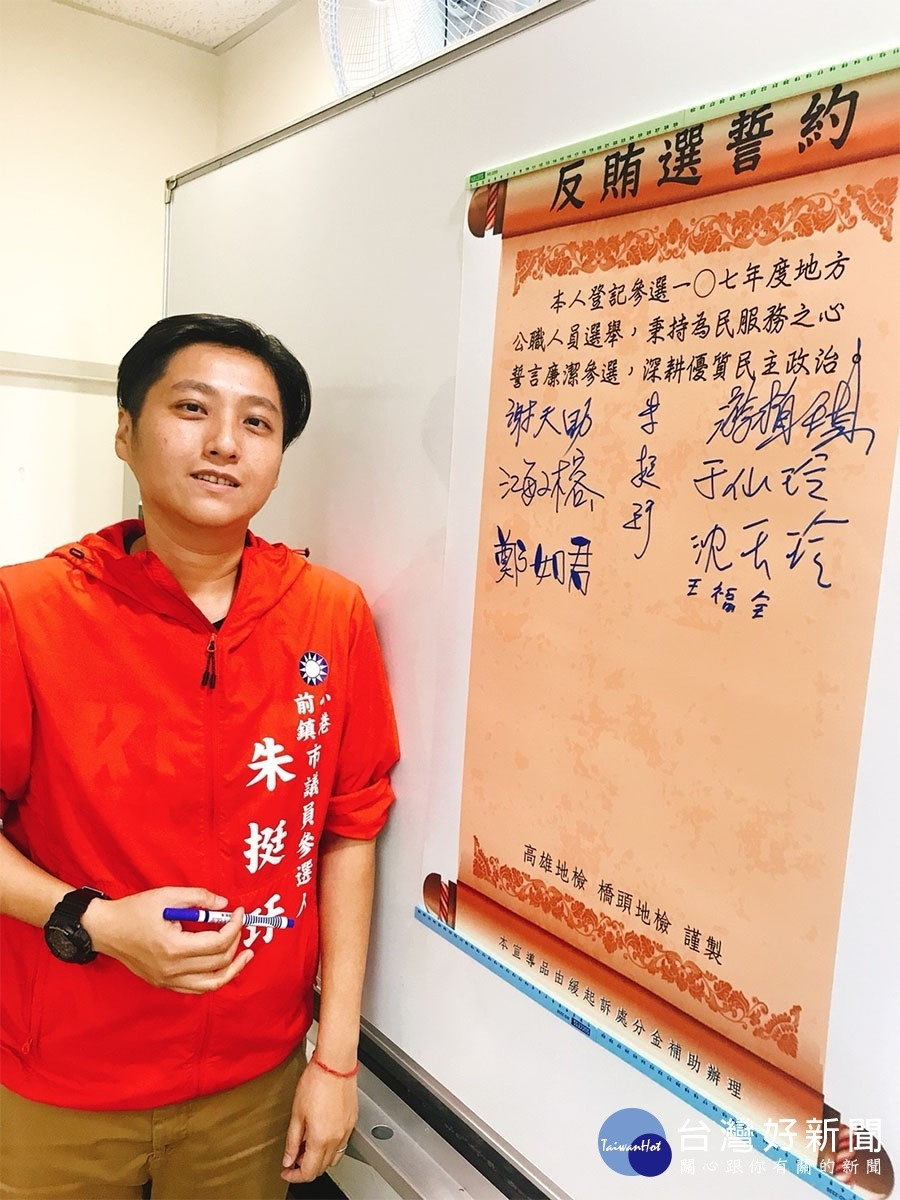 反賄選誓約
本人登記參選一〇七年度地方
公職人員選舉，秉持為民服務之心
誓言廉潔參選，深耕優質民主政治。
謝天助
朱挺
于仙玲
鄭如君
沈天玲
王福全
高雄地檢 橋頭地檢 謹製
本宣導品由緩起訴處分金補助辦理
小港
前鎮市議員參選人
朱挺
TaiwanHot
台灣好新聞
關心跟你有關的新聞